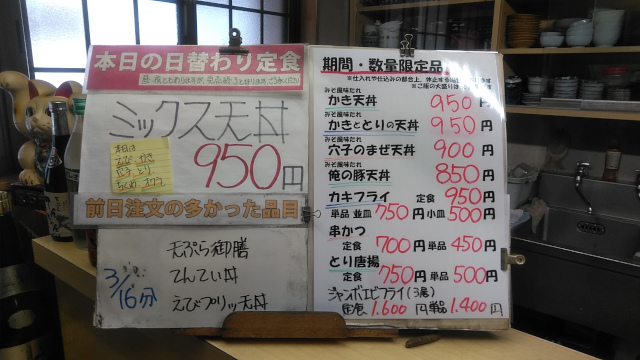 本日の日替わり定食
ミックス天丼
950円
本日は
えび かき
穴子 とり
ちくわ オクラ
前日注文の多かった品目
3/16分
天ぷら御膳
てんてい丼
えびプリッ天丼
期間・数量限定品
※仕入れや仕込みの都合上、休止する
※ご飯の大盛りは
みそ風味たれ
かき天丼 950円
みそ風味たれ
かきととりの天丼 950円
みそ風味たれ
穴子のまぜ天丼 900円
みそ風味たれ
俺の豚天丼 850円
カキフライ 定食 950円
単品 並皿 750円 小皿 500円
串かつ
定食 700円 単品 450円
とり唐揚
定食 750円 単品 500円
ジャンボエビフライ(3尾)
定食 1.600円 単品 1.400円